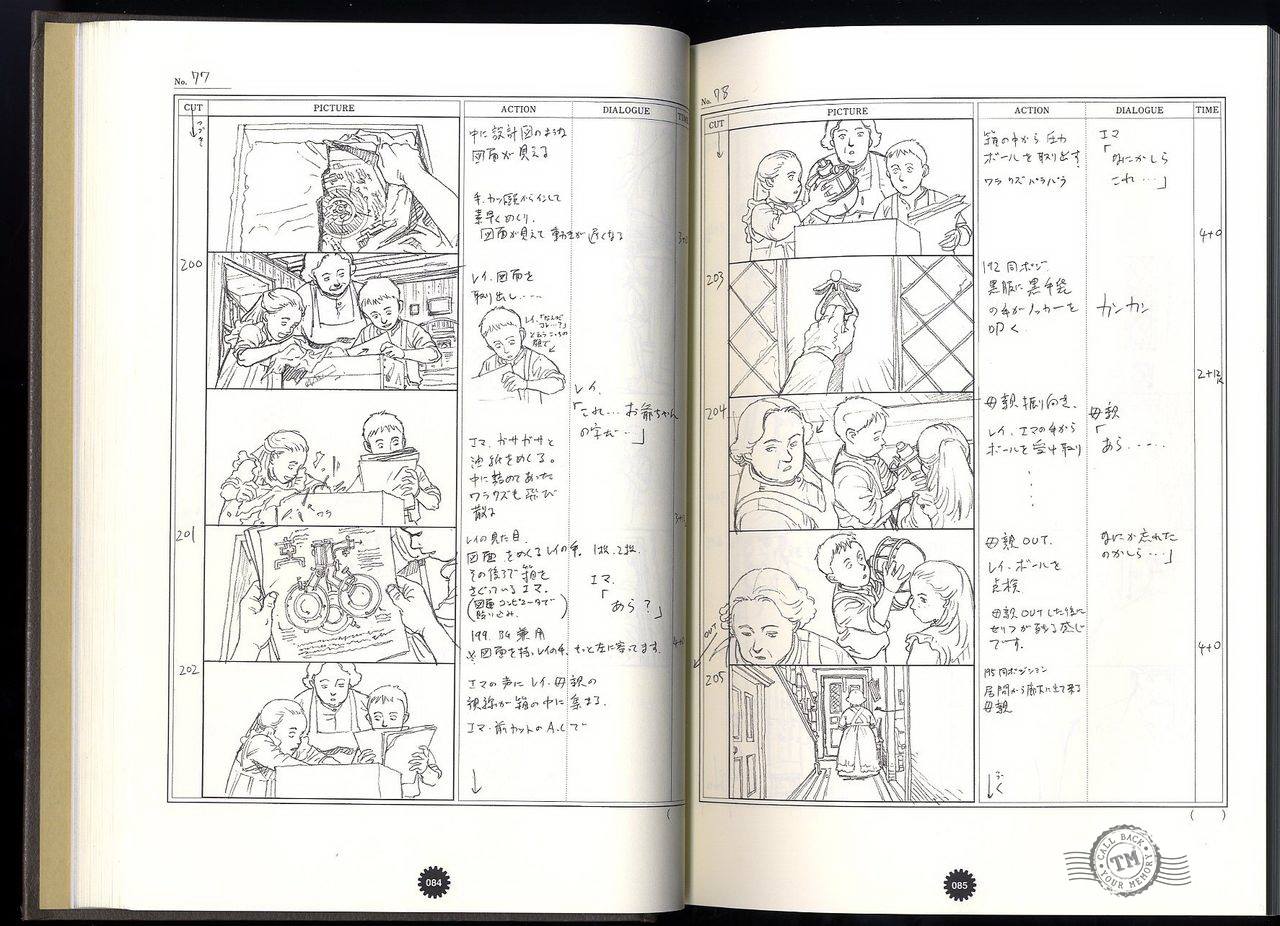 No. 77
CUT
PICTURE
ACTION
DIALOGUE
TIME
つづき
中に設計図のような
図面が見える
手、カメラ前からインして
素早くめくり、
図面が見えて動きが遅くなる
3+0
200
レイ、図面を
取り出し‥‥
レイ、「なんだ
コレ…?」
という
顔で
レイ、
「これ… お爺ちゃん
の字だ…」
エマ、ガサガサと
油紙をめくる。
中に詰めてあった
ワラクズも飛び
散る
201
レイの見た目。
図面をめくるレイの手、1枚、2枚。
その後ろで箱を
さぐっているエマ。
(図面コンピュータで
貼り込み。)
エマ、
「あら?」
199. B4 兼用
※図面を持つレイの手、もっと左に寄ってます。
4+0
202
エマの声にレイ、母親の
視線が箱の中に集まる。
エマ、前カットのA.Cで
084
No. 78
CUT
PICTURE
ACTION
DIALOGUE
TIME
箱の中から圧力
ボールを取り出す。
ワラクズパラパラ
エマ
「なにかしら
これ…」
4+0
203
192 同ポジ.
黒服に黒手袋
の手がノッカーを
叩く.
カンカン
2+12
204
母親振り向き、
レイ、エマの手から
ボールを受け取り
母親
「
あら‥‥‥
母親OUT.
レイ、ボールを
点検
母親OUTした後に
セリフが残る感じ
です。
なにか忘れた
のかしら…」
OUT
4+0
205
195同ポジション
居間から廊下に出て来る
母親
つづく
( )
085
CALL BACK
TM
YOUR MEMORY